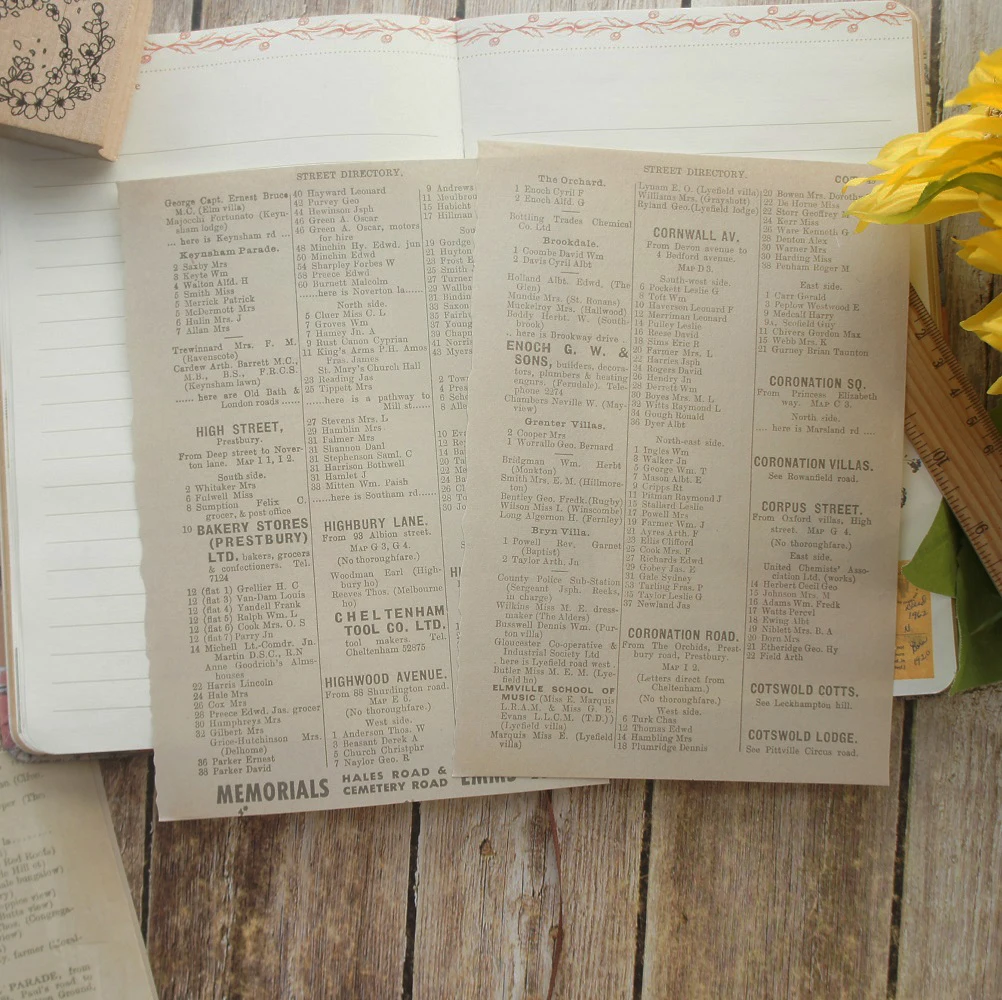 STREET DIRECTORY.
George Capt. Ernest Bruce
M.C. (Elm villa)
Majocchi Fortunato (Keyn-
sham lodge)
... here is Keynsham rd ...
Keynsham Parade.
2 Saxby Mrs
3 Keyte Wm
4 Walton Alfd. H
5 Smith Miss
5 Merrick Patrick
5 McDermott Mrs
6 Hulin Mrs. J
7 Allan Mrs
Trewinnard Mrs. F. M.
(Ravenscote)
Cardew Arth. Barrett M.C.,
M.B., B.S., F.R.C.S.
(Keynsham lawn)
...... here are Old Bath &
London roads ......
HIGH STREET,
Prestbury.
From Deep street to Nover-
ton lane. MAP I 1, I 2.
South side.
2 Whitaker Mrs
6 Fulwell Miss
8 Sumption Felix C.
grocer, & post office
10 BAKERY STORES
(PRESTBURY)
LTD. bakers, grocers
& confectioners. Tel.
7124
12 (flat 1) Grellier H. C
12 (flat 3) Van-Dam Louis
12 (flat 4) Yandell Frank
12 (flat 5) Ralph Wm. L
12 (flat 6) Cook Mrs. O. S
12 (flat 7) Parry Jn
14 Michell Lt.-Comdr. Jn.
Martin D.S.C., R.N
Anne Goodrich's Alms-
houses
22 Harris Lincoln
24 Hale Mrs
26 Cox Mrs
28 Preece Edwd. Jas. grocer
30 Humphreys Mrs
32 Gilbert Mrs
Grice-Hutchinson Mrs.
(Delhome)
36 Parker Ernest
38 Parker David
40 Hayward Leonard
42 Purvey Geo
44 Hewinson Jsph
46 Green A. Oscar
46 Green A. Oscar, motors
for hire
48 Minchin Hy. Edwd. jun
50 Minchin Edwd
54 Sharpley Forbes W
58 Preece Edwd
60 Burnett Malcolm
......here is Noverton la......
North side.
5 Cluer Miss C. L
7 Groves Wm
7 Hamey Jn. A
9 Rust Canon Cyprian
11 King's Arms P.H. Amos
Fras. James
St. Mary's Church Hall
23 Reading Jas
25 Tippett Mrs
......here is a pathway to
Mill st......
27 Stevens Mrs. L
29 Hamblin Mrs
31 Falmer Mrs
31 Shannon Danl
31 Stephenson Saml. C
31 Harrison Bothwell
31 Hamlet J
33 Mitten Wm. Paish
......here is Southam rd......
HIGHBURY LANE.
From 93 Albion street.
MAP G 3, G 4.
(No thoroughfare.)
Woodman Earl (High-
bury ho)
Reeves Thos. (Melbourne
ho)
CHELTENHAM
TOOL CO. LTD.
tool makers. Tel.
Cheltenham 52875
HIGHWOOD AVENUE.
From 88 Shurdington road.
MAP E 6.
(No thoroughfare.)
West side.
1 Anderson Thos. W
3 Beasant Derek A
5 Church Christphr
7 Naylor Geo. R
9 Andrews
MEMORIALS HALES ROAD &
CEMETERY ROAD
STREET DIRECTORY.
The Orchard.
1 Enoch Cyril F
2 Enoch Alfd. G
Bottling Trades Chemical
Co. Ltd
Brookdale.
1 Coombs David Wm
2 Davis Cyril Albt
Holland Albt. Edwd. (The
Glen)
Mundie Mrs. (St. Ronans)
Muckelroy Mrs. (Hallwood)
Boddy Herbt. W. (South-
brook)
.. here is Brookway drive ..
ENOCH G. W. &
SONS, builders, decora-
tors, plumbers & heating
engnrs. (Ferndale). Tele-
phone 2274
Chambers Neville W. (May-
view)
Grenter Villas.
2 Cooper Mrs
1 Worrallo Geo. Bernard
Bridgman Wm. Herbt
(Monkton)
Smith Mrs. E. M. (Hillmore-
ton)
Bentley Geo. Fredk.(Rugby)
Wilson Miss I. (Winscombe)
Long Algernon H. (Fernley)
Bryn Villa.
1 Powell Rev. Garnet
(Baptist)
2 Taylor Arth. Jn
County Police Sub-Station
(Sergeant Jsph. Reeks,
in charge)
Wilkins Miss M. E. dress-
maker (The Alders)
Russwell Dennis Wm. (Pur-
ton villa)
Gloucester Co-operative &
Industrial Society Ltd
. here is Lyefield road west .
Butler Miss M. E. M. (Lye-
field ho)
ELMVILLE SCHOOL OF
MUSIC (Miss E. Marquis
L.R.A.M. & Miss G. E.
Evans L.L.C.M. (T.D.))
(Lyefield villa)
Marquis Miss E. (Lyefield
villa)
Lynam E. O. (Lyefield villa)
Williams Mrs. (Grayshott)
Ryland Geo.(Lyefield lodge)
CORNWALL AV.
From Devon avenue to
4 Bedford avenue.
MAP D 3.
South-west side.
6 Pockett Leslie G
8 Toft Wm
10 Haverson Leonard F
12 Merriman Leonard
14 Pulley Leslie
16 Reese David
18 Sims Eric R
20 Farmer Mrs. L
22 Harries Jsph
24 Rogers David
26 Hendry Jn
28 Derrett Wm
30 Boyes Mrs. M. L
32 Witts Raymond L
34 Gough Ronald
36 Dyer Albt
North-east side.
1 Ingles Wm
3 Walker Jn
5 George Wm. T
7 Mason Albt. E
9 Cripps Rt
11 Pitman Raymond J
15 Stallard Leslie
17 Powell Mrs
19 Farmer Wm. J
21 Ayres Arth. F
23 Ellis Clifford
25 Cook Mrs. F
27 Richards Edwd
29 Gobey Jas. E
31 Gale Sydney
33 Tarling Fras. P
35 Taylor Leslie G
37 Newland Jas
CORONATION ROAD.
From The Orchids, Prest-
bury road, Prestbury.
MAP I 2.
(Letters direct from
Cheltenham.)
(No thoroughfare.)
West side.
6 Turk Chas
12 Thomas Edwd
14 Hambling Mrs
18 Plumridge Dennis
20 Bowen Mrs. Dorothy
22 De Horne Miss
22 Storr Geoffrey
24 Kerr Miss
26 Ware Kenneth G
28 Denton Alex
30 Warner Mrs
30 Harding Miss
38 Penham Roger M
East side.
1 Carr Gerald
3 Peplow Westwood E
9 Medcalf Harry
9A, Scofield Guy
11 Chivers Gordon Max
15 Webb Mrs. K
21 Gurney Brian Taunton
CORONATION SQ.
From Princess Elizabeth
way. MAP C 3.
North side.
.... here is Marsland rd ....
CORONATION VILLAS.
See Rowanfield road.
CORPUS STREET.
From Oxford villas, High
street. MAP G 4.
(No thoroughfare.)
East side.
United Chemists' Asso-
ciation Ltd. (works)
14 Herbert Cecil Geo
15 Johnson Mrs. M
16 Adams Wm. Fredk
17 Watts Percvl
18 Ewing Albt
19 Niblett Mrs. B. A
20 Dorn Mrs
21 Etheridge Geo. Hy
22 Field Arth
COTSWOLD COTTS.
See Leckhampton hill.
COTSWOLD LODGE.
See Pittville Circus road.
PARADE, from